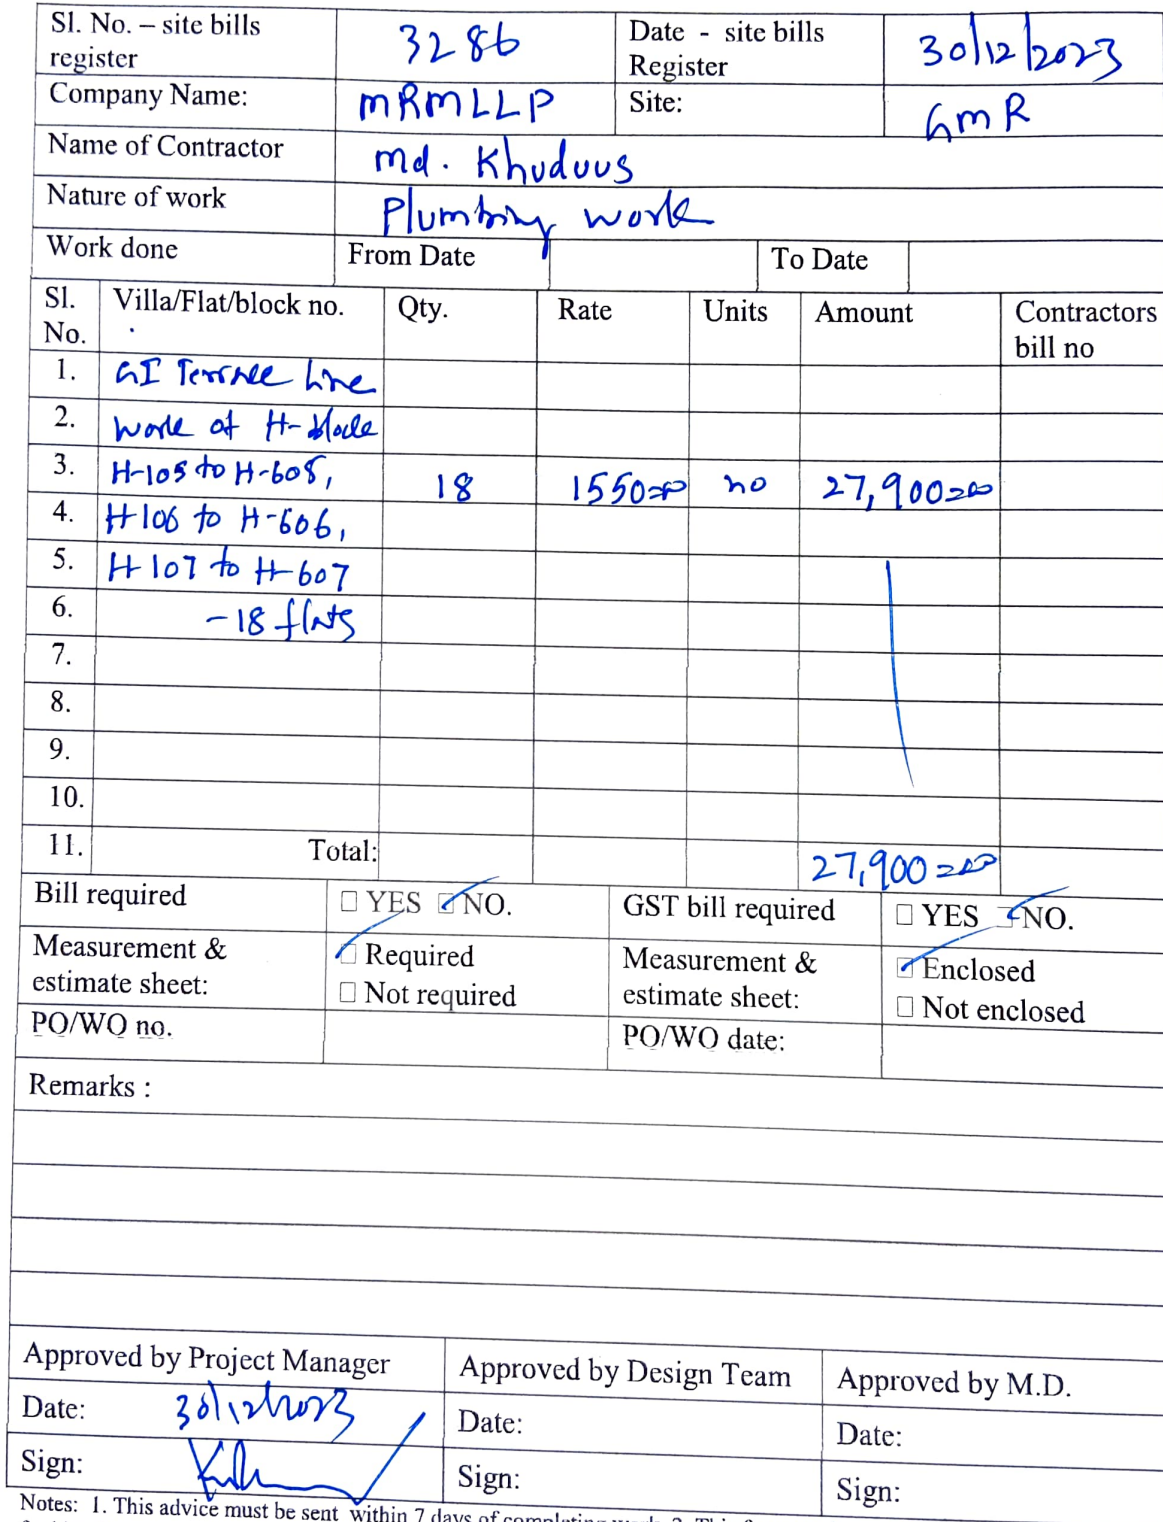 Sl. No. – site bills register 3286 Date - site bills Register 30/12/2023
Company Name: MRMLLP Site: GMR
Name of Contractor Md. Khuduus
Nature of work Plumbing work
Work done From Date To Date
Sl. No. Villa/Flat/block no. Qty. Rate Units Amount Contractors bill no
1. GI Terrace Line
2. work of H-block
3. H-105 to H-605, 18 1550=00 no 27,900=00
4. H-106 to H-606,
5. H-107 to H-607
6. -18 flats
7.
8.
9.
10.
11. Total: 27,900=00
Bill required □ YES □ NO. GST bill required □ YES □ NO.
Measurement & estimate sheet: □ Required □ Not required Measurement & estimate sheet: □ Enclosed □ Not enclosed
PO/WO no. PO/WO date:
Remarks :
Approved by Project Manager Approved by Design Team Approved by M.D.
Date: 30/12/2023 Date: Date:
Sign: Sign: Sign:
Notes: 1. This advice must be sent within 7 days of completing work. 2. This